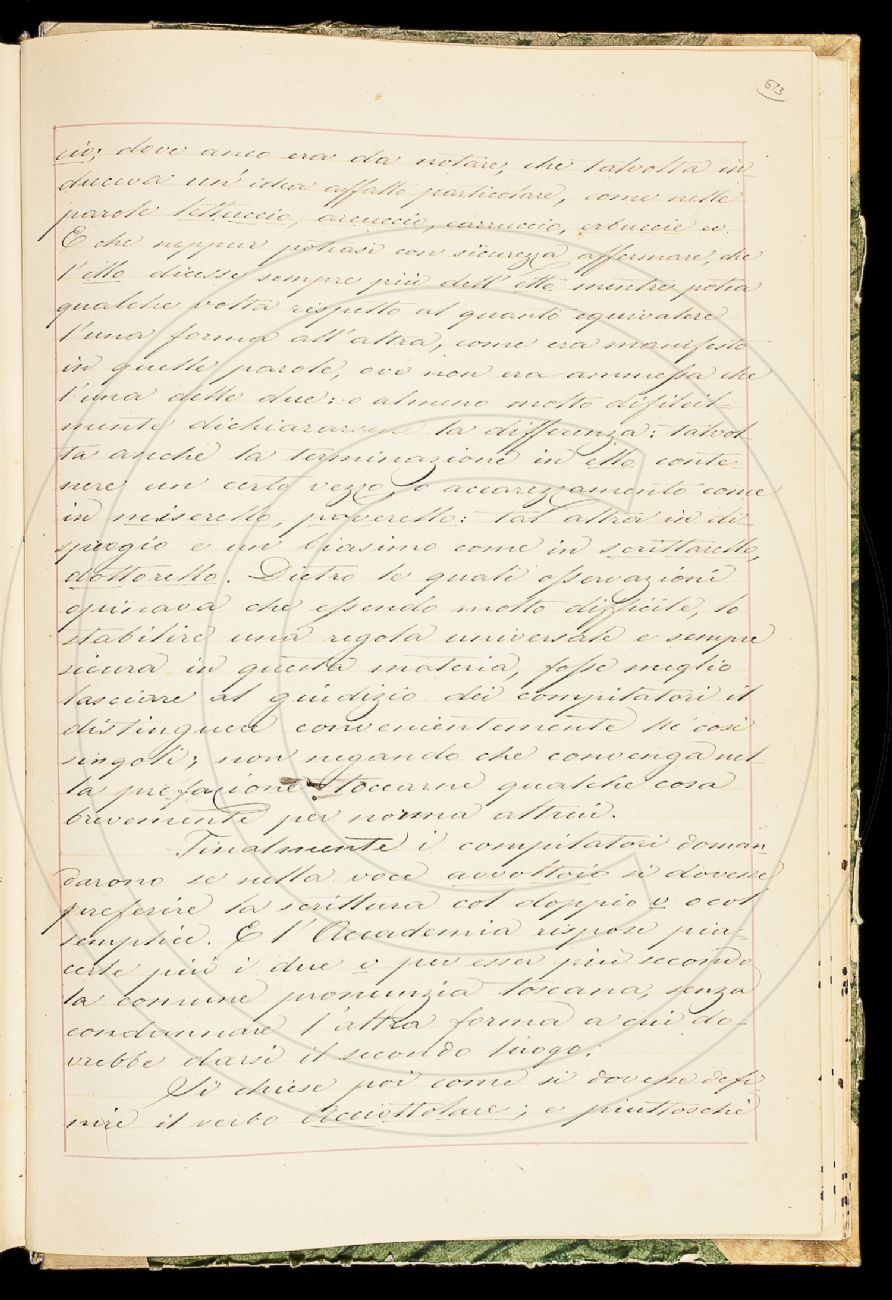 673
cio; dove anco era da notare, che talvolta in
duceva un'idea affatto particolare, come nelle
parole lettuccio, arcuccio, carruccio, erbuccie ec.
E che neppur poteasi con sicurezza affermare, che
l'ello dicesse sempre più dell'etto mentre potea
qualche volta rispetto al quanto equivalere
l'una forma all'altra, come era manifesto
in quelle parole, ove non era ammessa che
l'una delle due: o almeno molto dificil=
mente dichiararsene la differenza: talvol-
ta anche la terminazione in ello conte
nere un certo vezzo, o accarezzamento come
in miserello, poverello: tal altra in di-
spregio e un biasimo come in scrittarello,
dottorello. Dietro le quali osservazioni
opinava che essendo molto difficile, lo
stabilire una regola universale e sempre
sicura in questa materia, fosse meglio
lasciare al giudizio dei compilatori il
distinguere convenientemente ne' casi
singoli; non negando che convenga nel-
la prefazione toccarne qualche cosa
brevemente per norma altrui.
Finalmente i compilatori doman-
darono se nella voce avvoltoio si dovesse
preferire la scrittura col doppio v o col
semplice. E l'Accademia rispose pia=
cerle più i due v per esser più secondo
la comune pronunzia toscana, senza
condannare l'altra forma a cui do-
vrebbe darsi il secondo luogo.
Si chiese poi come si dovesse defi
nire il verbo Acciottolare; e piuttoschè